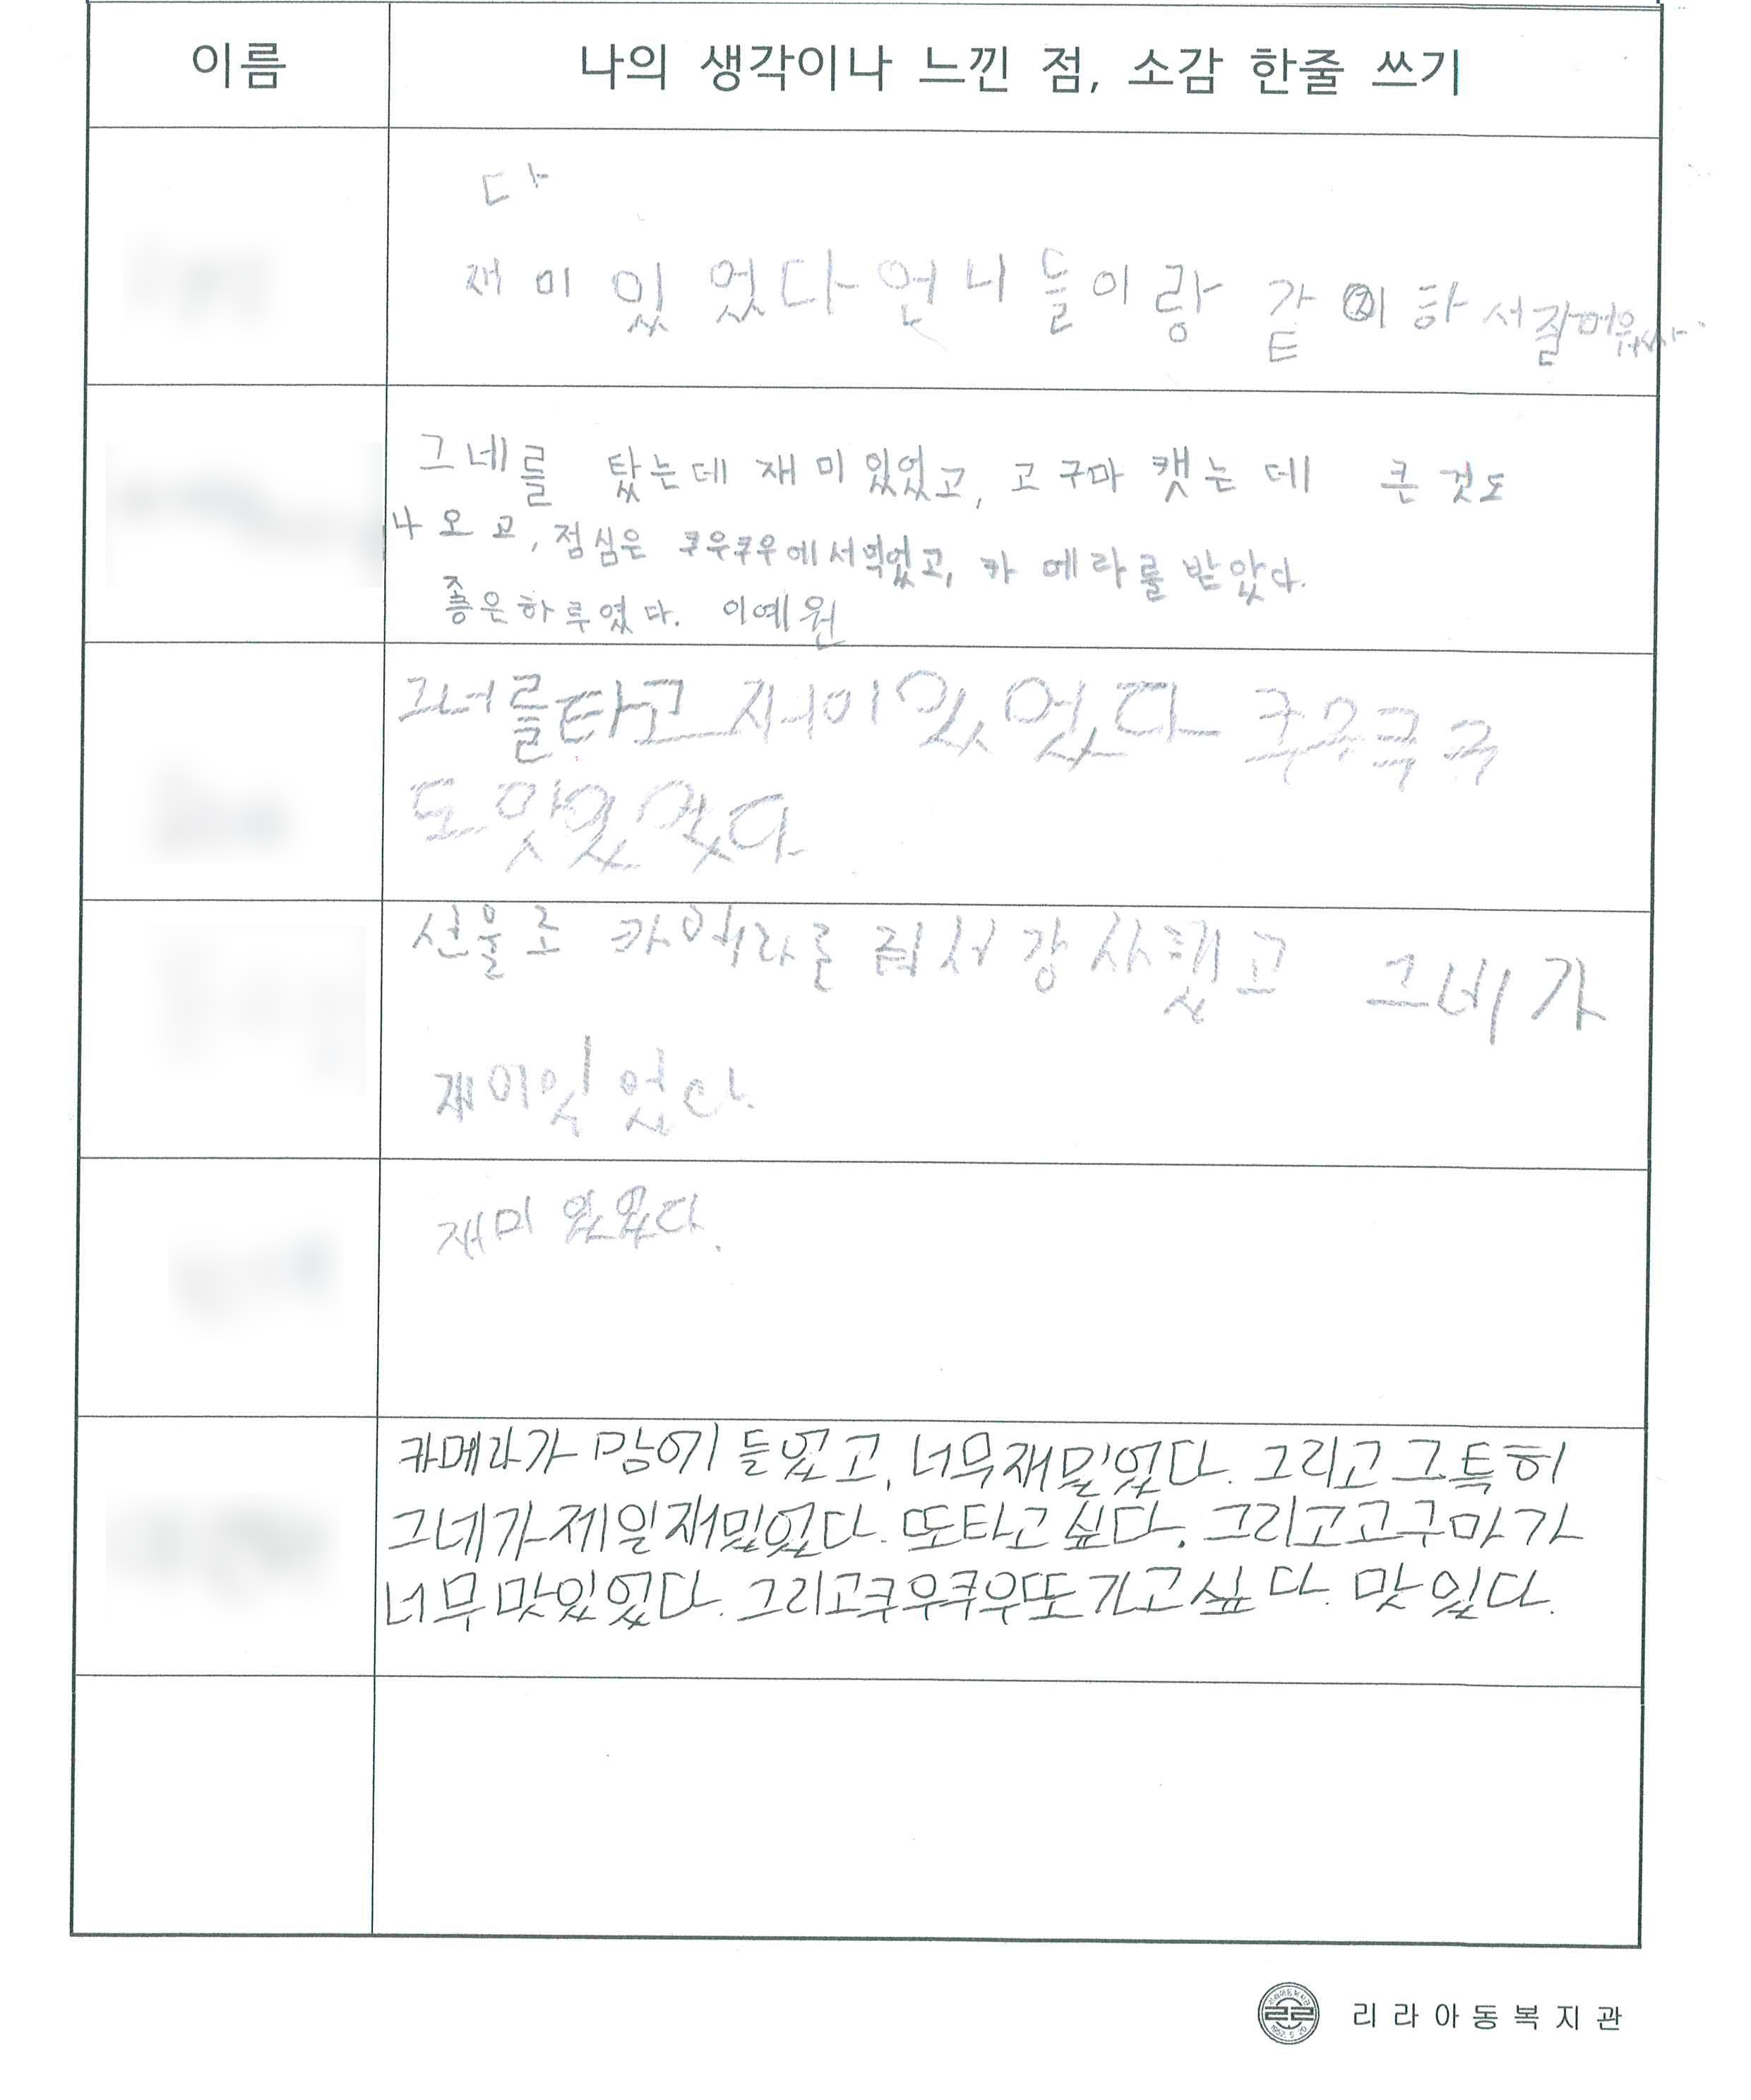 이름 나의 생각이나 느낀 점, 소감 한줄 쓰기
다
재미있었다 언니들이랑 같이 하서
그네를 탔는데 재미있었고, 고구마 캣는데 큰 것도
나오고, 점심은 쿠우쿠우에서 먹었고, 카메라를 받았다.
좋은하루였다. 이예원
그너를타고 재미있었다
도 맛있었다
선물로 카메라를 강사했고 그네가
재미있었다.
재미있었다.
카메라가 맘에 들었고, 너무재밌었다. 그리고 그특히
그네가제일재밌었다. 또타고싶다. 그리고고구마가
너무맛있있다. 그리고쿠우쿠우또가고싶다. 맛있다.
리라아동복지관